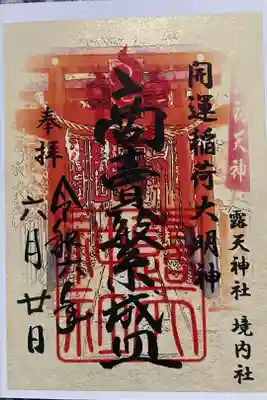 開運稲荷大明神
露天神社 境内社
商賣繁城
奉拝
令和六年
六月廿日